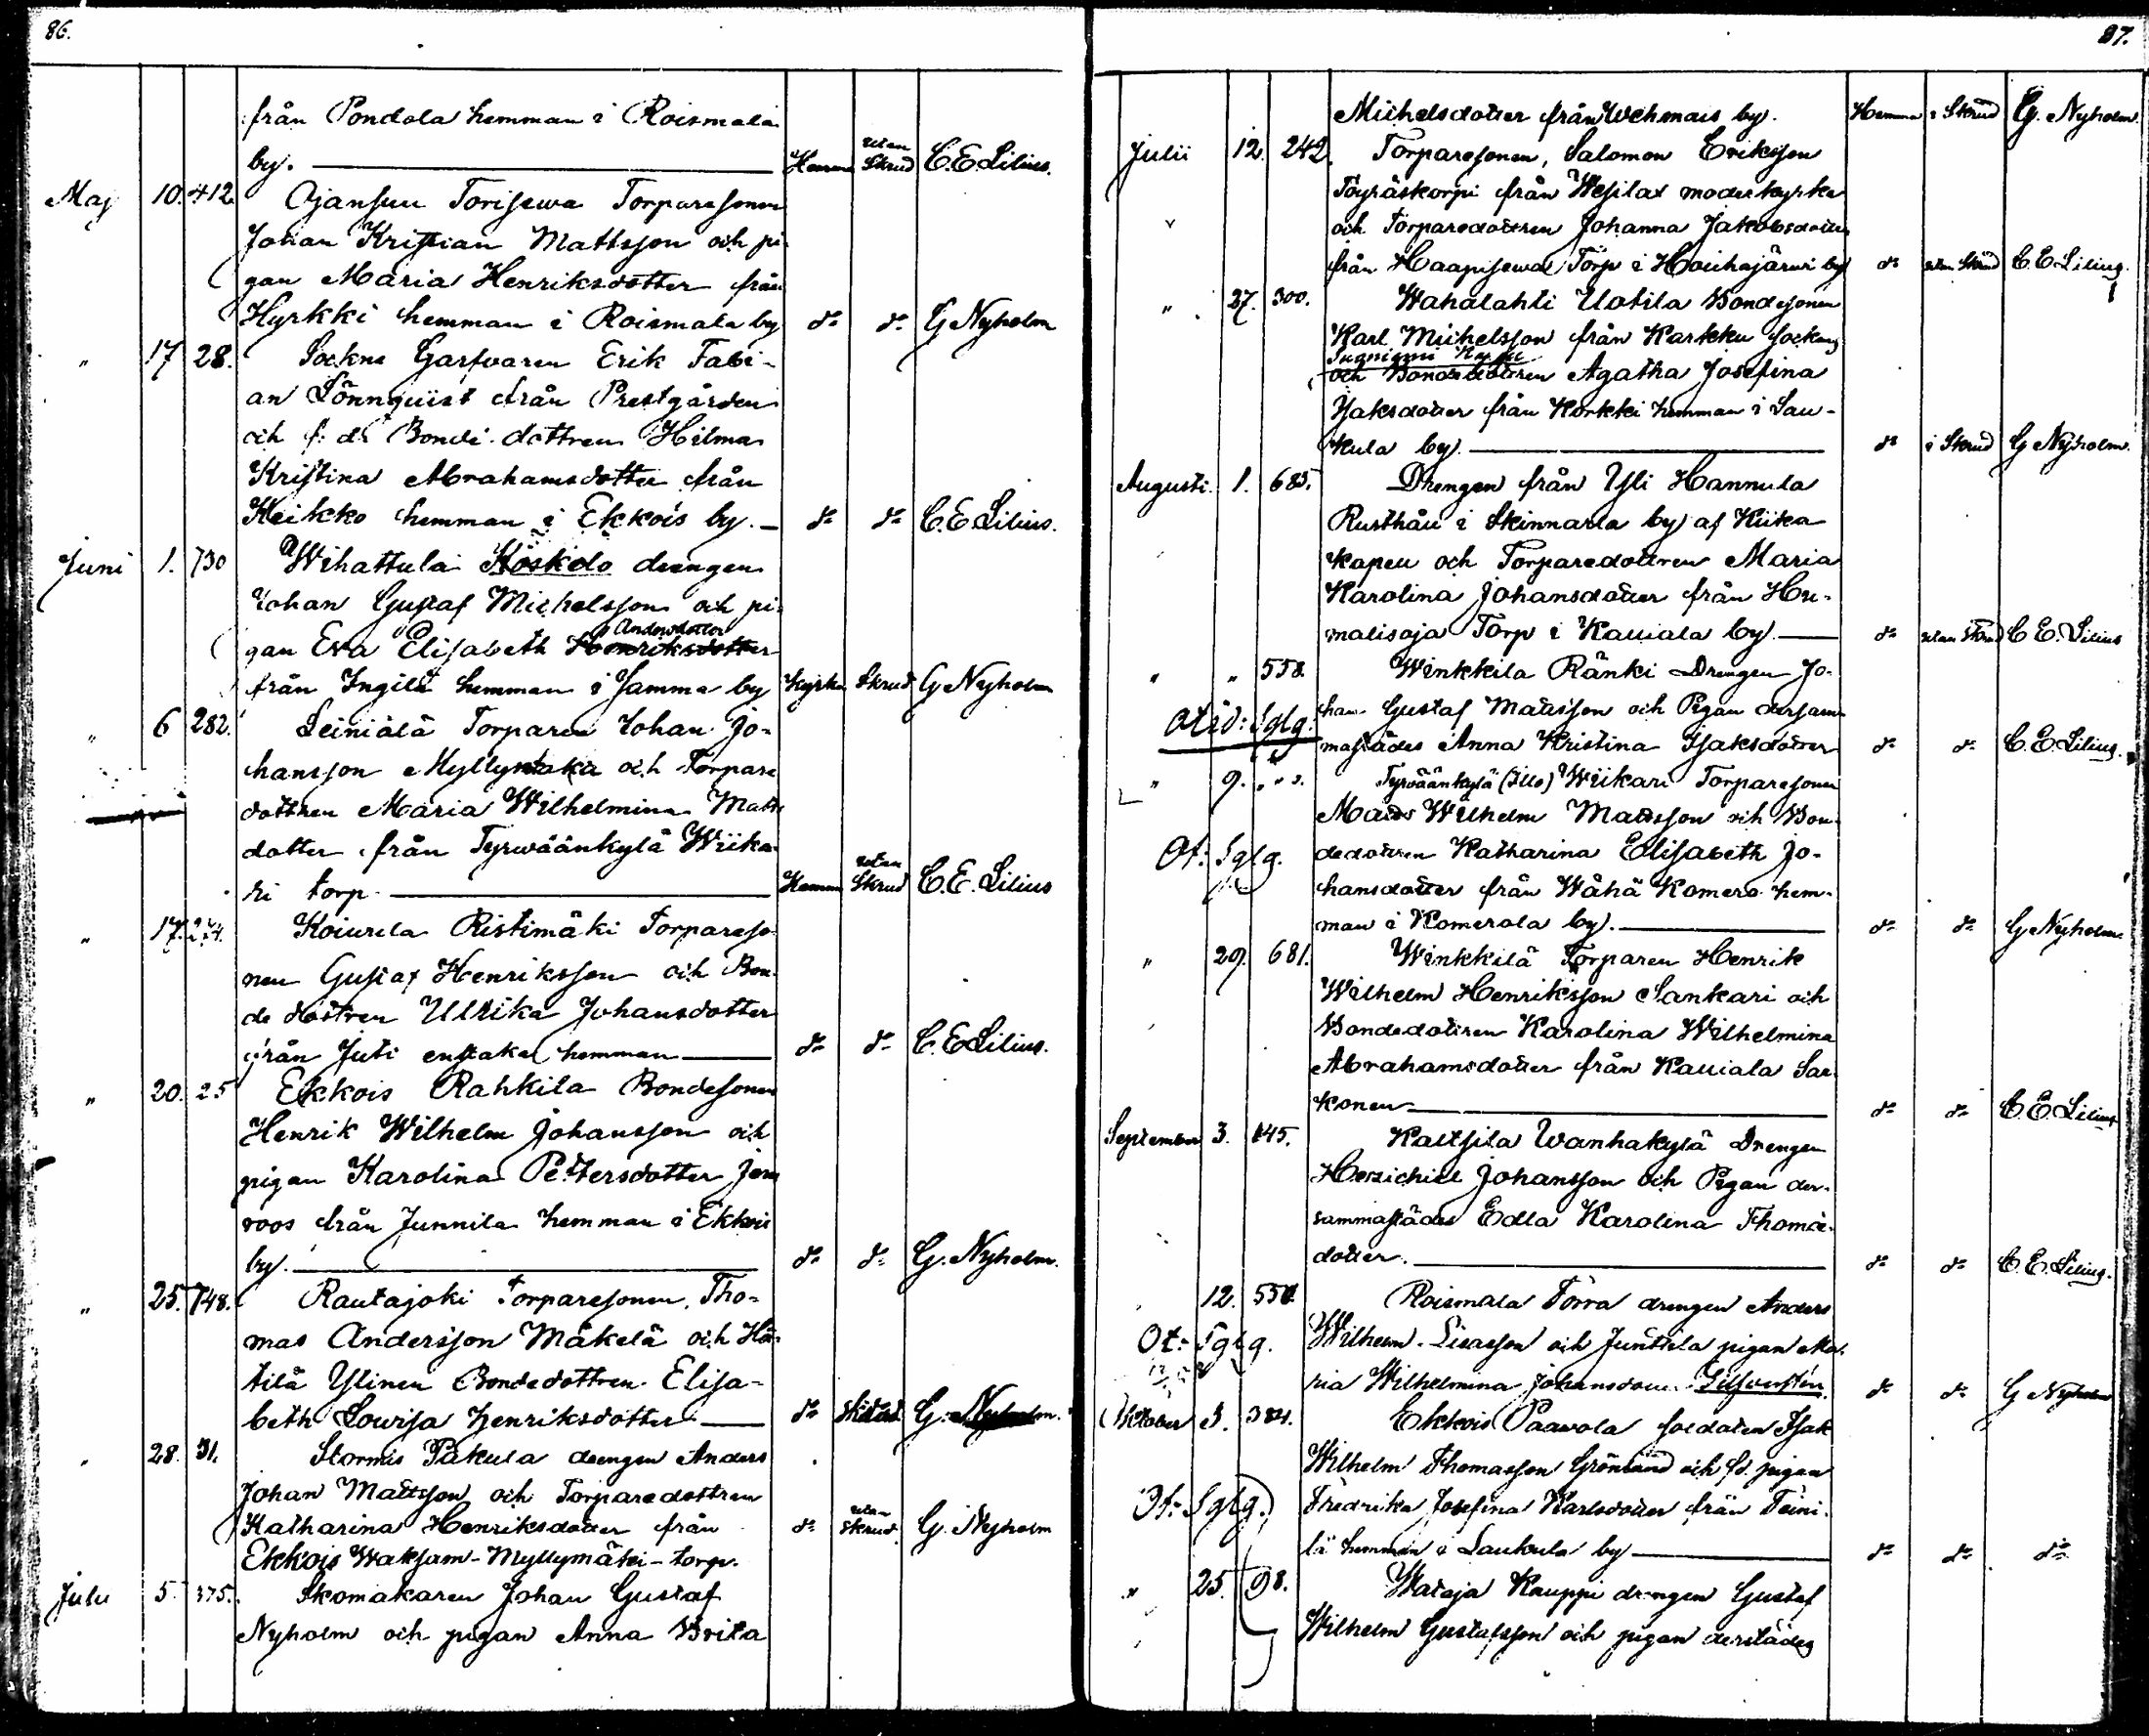 86.
från Pondola hemman i Roismala
by. Hemma utan Skrud C. E. Lilius.
Maj 10. 412. Ojansuu Torisewa Torparesonen
Johan Kristian Mattsson och pi-
gan Maria Henriksdotter från
Hyrkki hemman i Roismala by do do G Nyholm
" 17 28. Sockne Garfvaren Erik Fabi-
an Lönnquist från Prestgården
och f. d. Bonde dottren Hilma
Kristina Abrahamsdotter från
Heikko hemman i Ekkois by. do do C. E. Lilius.
Juni 1. 730 Wihattula Köskelo drengen
Johan Gustaf Michelsson och pi-
gan Eva Elisabeth Henriksdotter Andersdotter
från Ingilä hemman i Jamma by Kyrka Skrud G Nyholm
" 6 282. Leiniälä Torparen Johan Jo-
hansson Myllyntaka och Torpare
dottren Maria Wilhelmina Matts
dotter från Tyrwäänkylä Wiika-
ri torp. Hemma utan Skrud C. E. Lilius
" 17. 274. Koiurela Ristimäki Torpareso-
nen Gustaf Henriksson och Bon-
de dottren Ulrika Johansdotter
från Juti enstaka hemman do do C. E. Lilius.
" 20. 25 Ekkois Rahkila Bondesonen
Henrik Wilhelm Johansson och
pigan Karolina Pettersdotter Jern
roos från Junnila hemman i Ekkois
by. do do G. Nyholm.
" 25. 748. Rautajoki Torparesonen, Tho-
mas Andersson Mäkelä och Hä-
tilä Ylinen Bondedottren Elisa-
beth Lowisa Henriksdotter do G. Nyholm.
" 28. 31. Stormis Pakula drengen Anders
Johan Mattsson och Torparedottren
Katharina Henriksdotter från do utan Skrud. G. Nyholm
Ekkois Waksam-Myllymäki-torp.
Julii 5. 375. Skomakaren Johan Gustaf
Nyholm och pigan Anna Brita
87.
Michelsdotter från Wehmais by. Hemma i Skrud G. Nyholm.
Julii 12. 242. Torparesonen, Salomon Eriksson
Töyräskorpi från Wesilax moderkyrka
och Torparedottren Johanna Jakobsdotter
från Haapisewa Torp i Houhajärwi by do utan Skrud C. E. Lilius.
" 27. 300. Wahalahti Uotila Bondesonen
Karl Michelsson från Karkku socken
och Bondedottren Agatha Josefina
Isaksdotter från Korkki hemman i Lau-
kula by. do i Skrud G Nyholm.
Augusti. 1. 685. Drengen från Yli Hannula
Rusthåll i Skinnarla by af Kiika
kapell och Torparedottren Maria
Karolina Johansdotter från Hu-
malisoja Torp i Kauiala by do utan Skrud C E. Lilius
" " 558. Winkkila Ränki Drengen Jo-
han Gustaf Matsson och Pigan dersam-
mastädes Anna Kristina Isaksdotter do do C. E. Lilius.
" 9. " Tyrväänkylä (Illo) Wiikari Torparesonen
Matts Wilhelm Matsson och Bon-
dedottren Katharina Elisabeth Jo-
hansdotter från Wähä Komero hem-
man i Komerola by. do do G Nyholm.
" 29. 681. Winkkilä Torparen Henrik
Wilhelm Henriksson Sankari och
Bondedottren Karolina Wilhelmina
Abrahamsdotter från Kauiala Sar-
konen do do C. E. Lilius
September 3. 145. Kaltsila Wanhakylä Drengen
Hezichiel Johansson och Pigan der-
sammastädes Edla Karolina Thomæ-
dotter. do do C. E. Lilius.
12. 550. Roismala Törra drengen Anders
Wilhelm Lisasson och Junttila pigan Ma-
ria Wilhelmina Johansdotter do do G Nyholm
Oktober 384. Ekkois Paavola soldaten Isak
Wilhelm Thomasson Grönlund och fd. pigan
Fredrika Josefina Karlsdotter från Teini-
lä hemman i Laukula by do do do
" 25. 98. Wataja Kauppi drengen Gustaf
Wilhelm Gustafsson och pigan derstädes